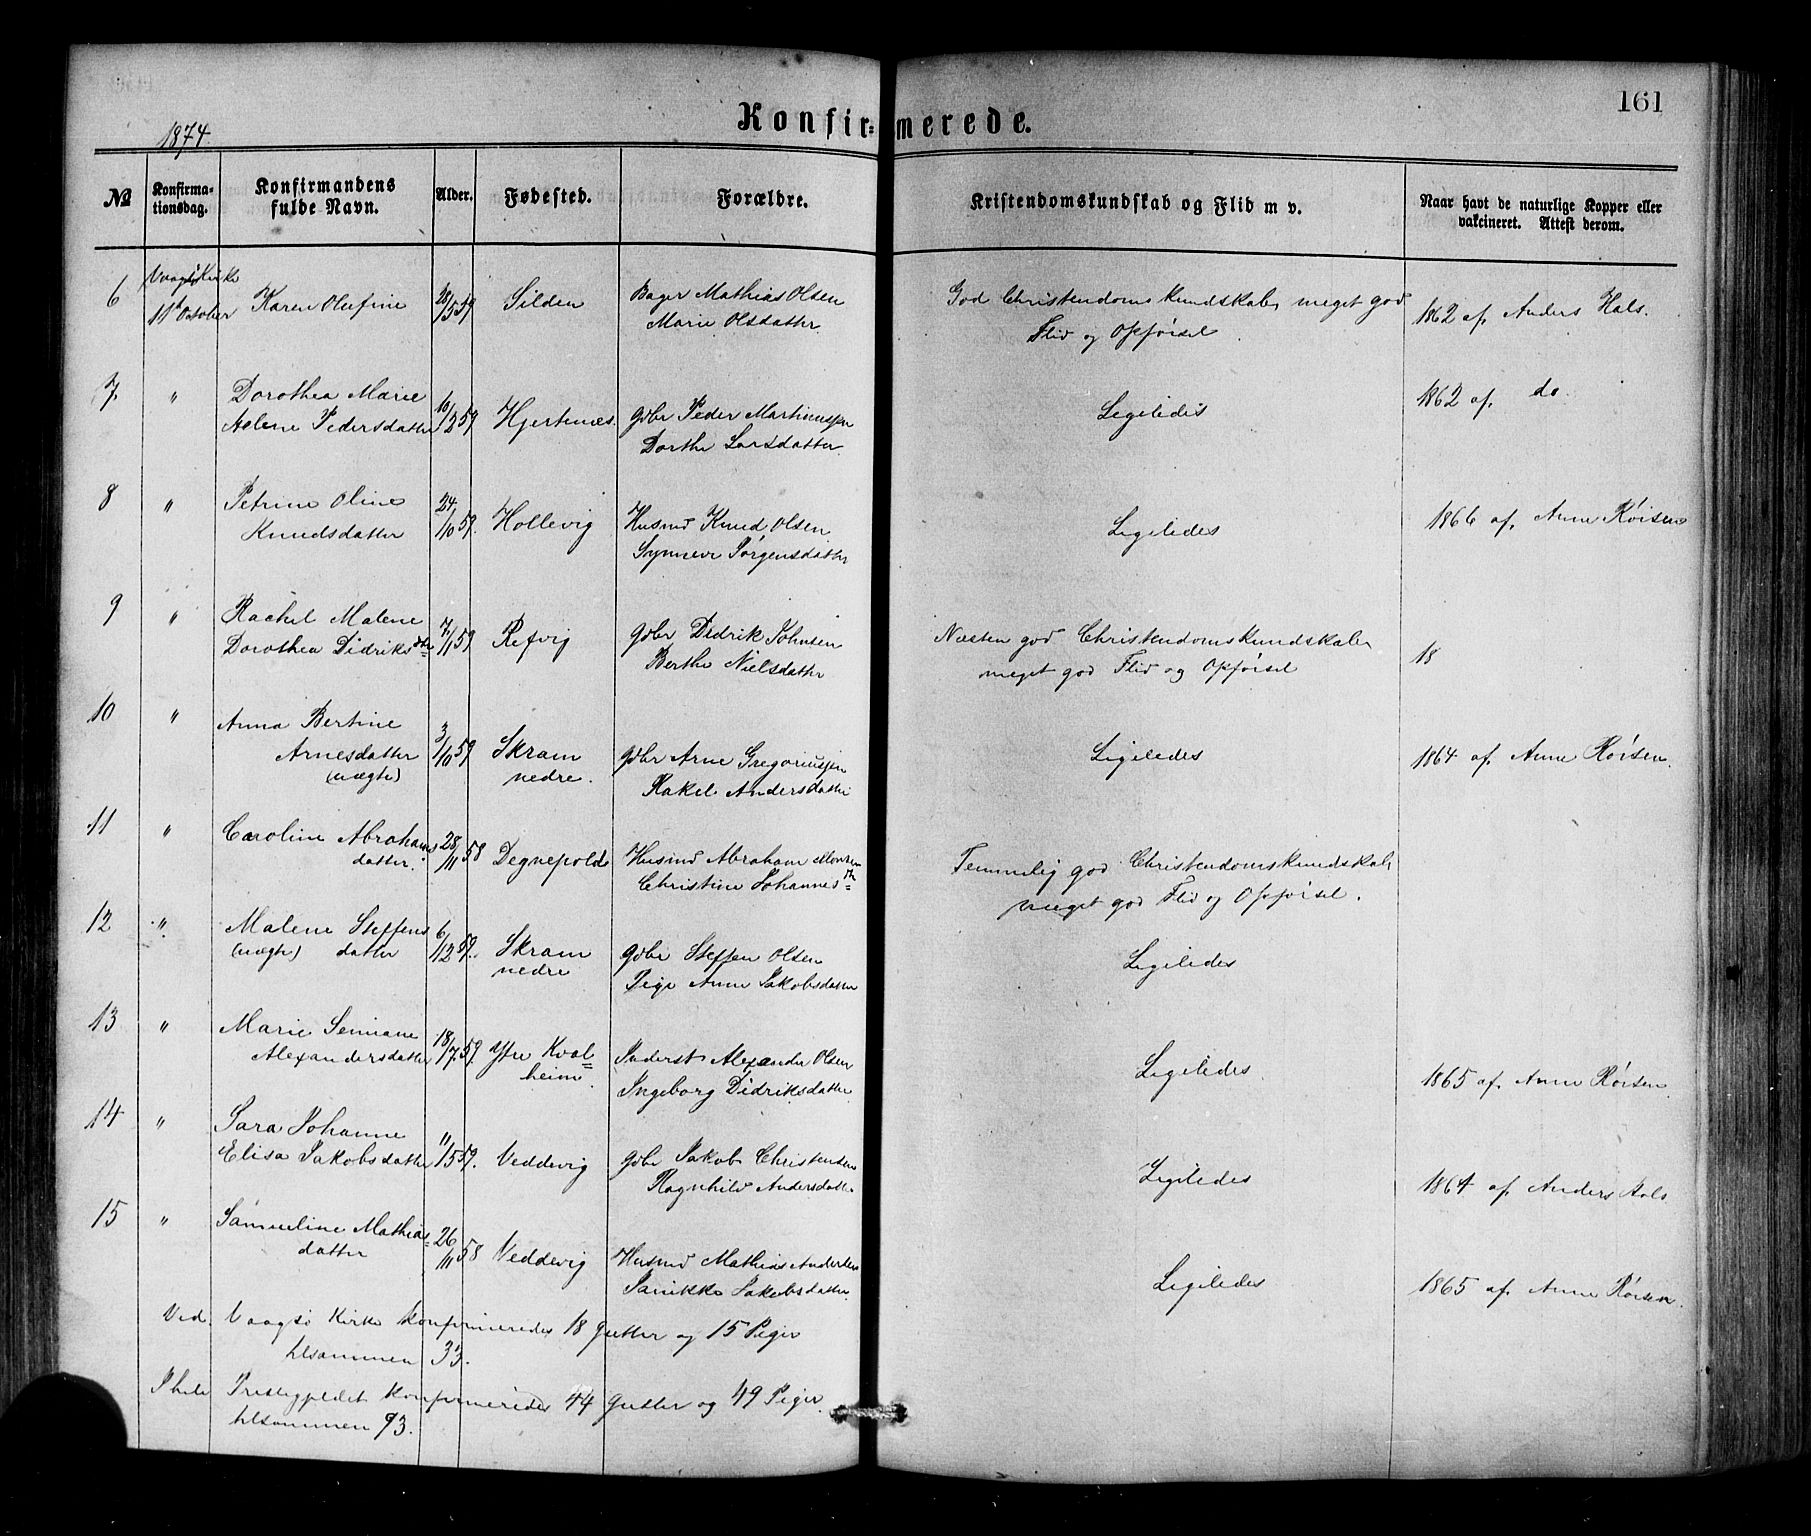 161
Konfir=merede.
1874.
№
Konfirma-
tionsdag.
Konfirmandens
fulde Navn.
Alder.
Fødested.
Forældre.
Kristendomskundskab og Flid m v.
Naar havt de naturlige Kopper eller
vakcineret. Attest derom.
6 Vaagsø Kirke 11te October Karen Olufine 59 Silden Bager Mathias Olsen
Marie Olsdatter
God Christendomskundskab, meget god
Flid og Opførsel
1862 af Anders Hals.
7. " Dorothea Marie
Aolene Pedersdatter 10/12 59 Hjertenæs. Gdbr Peder Martinussen
Dorthe Larsdatter
Ligeledes 1862 af do.
8 " Petrine Oline
Knudsdatter 24/10 59. Hollevig Husmd Knud Olsen
Synneve Jørgensdatter
Ligeledes 1866 af Anne Røisen
9 " Rachel Malene
Dorothea Didriksdtr 7/1 59 Refvig Gdbr Didrik Johnsen
Berthe Nielsdatter
Næsten god Christendomskundskab,
meget god Flid og Opførsel
18
10 " Anna Bertine
Arnesdatter
(uægte) 3/10 59 Skram
nedre. Gdbr Arne Gregoriussen
Rakel Andersdatter
Ligeledes 1864 af Anne Røisen.
11 " Caroline Abrahams
datter. 28/11 58 Degnepold Husmd Abraham Monsen
Christine Johannesdtr
Temmelig god Christendomskundskab,
meget god Flid og Opførsel.
12 " Malene Steffens
(uægte) datter 6/12 59. Skram
nedre Gdbr Steffen Olsen
Pige Anne Jakobsdatter
Ligeledes
13 " Marie
Alexandersdatter 18/7 59 Ytre Kval=
heim. Inderst Alexander Olsen
Ingeborg Didriksdatter
Ligeledes 1865 af Anne Røisen
14 " Sara Johanne
Elisa Jakobsdatter 59. Veddevig Gdbr Jakob Christensen
Ragnhild Andersdatter
Ligeledes 1864 af Anders Hals
15 " Samueline Mathias=
datter 26/11 58 Veddevig Husmd Mathias Andersen
Janikke Jakobsdatter.
Ligeledes 1865 af Anne Røisen.
Ved Vaagsø Kirke konfirmeredes 18 Gutter og 15 Piger
tilsammen 33.
I hele Præstegjeldet konfirmeredes 44 Gutter og 49 Piger.
tilsammen 93.